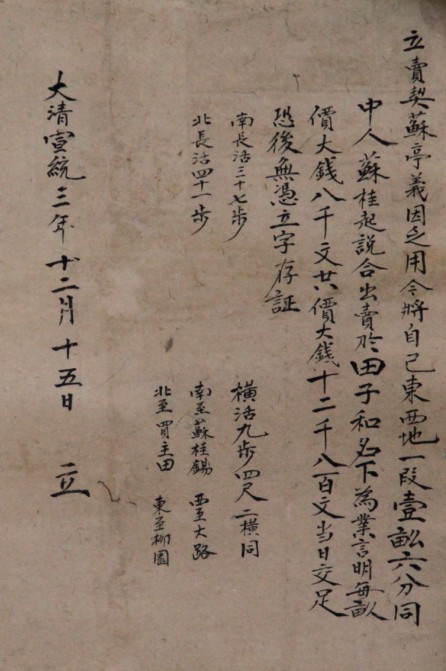 立賣契蘇亭義因乏用今將自己東西地一段壹畝六分同
中人蘇桂起説合出賣於田子和名下為業言明每畝
價大錢八千文共價大錢十二千八百文當日交足
恐後無憑立字存証
南長活三十七步
北長活四十一步
橫活九步四尺二橫同
南至蘇桂錫 西至大路
北至買主田 東至柳園
大清宣統三年十二月十五日 立